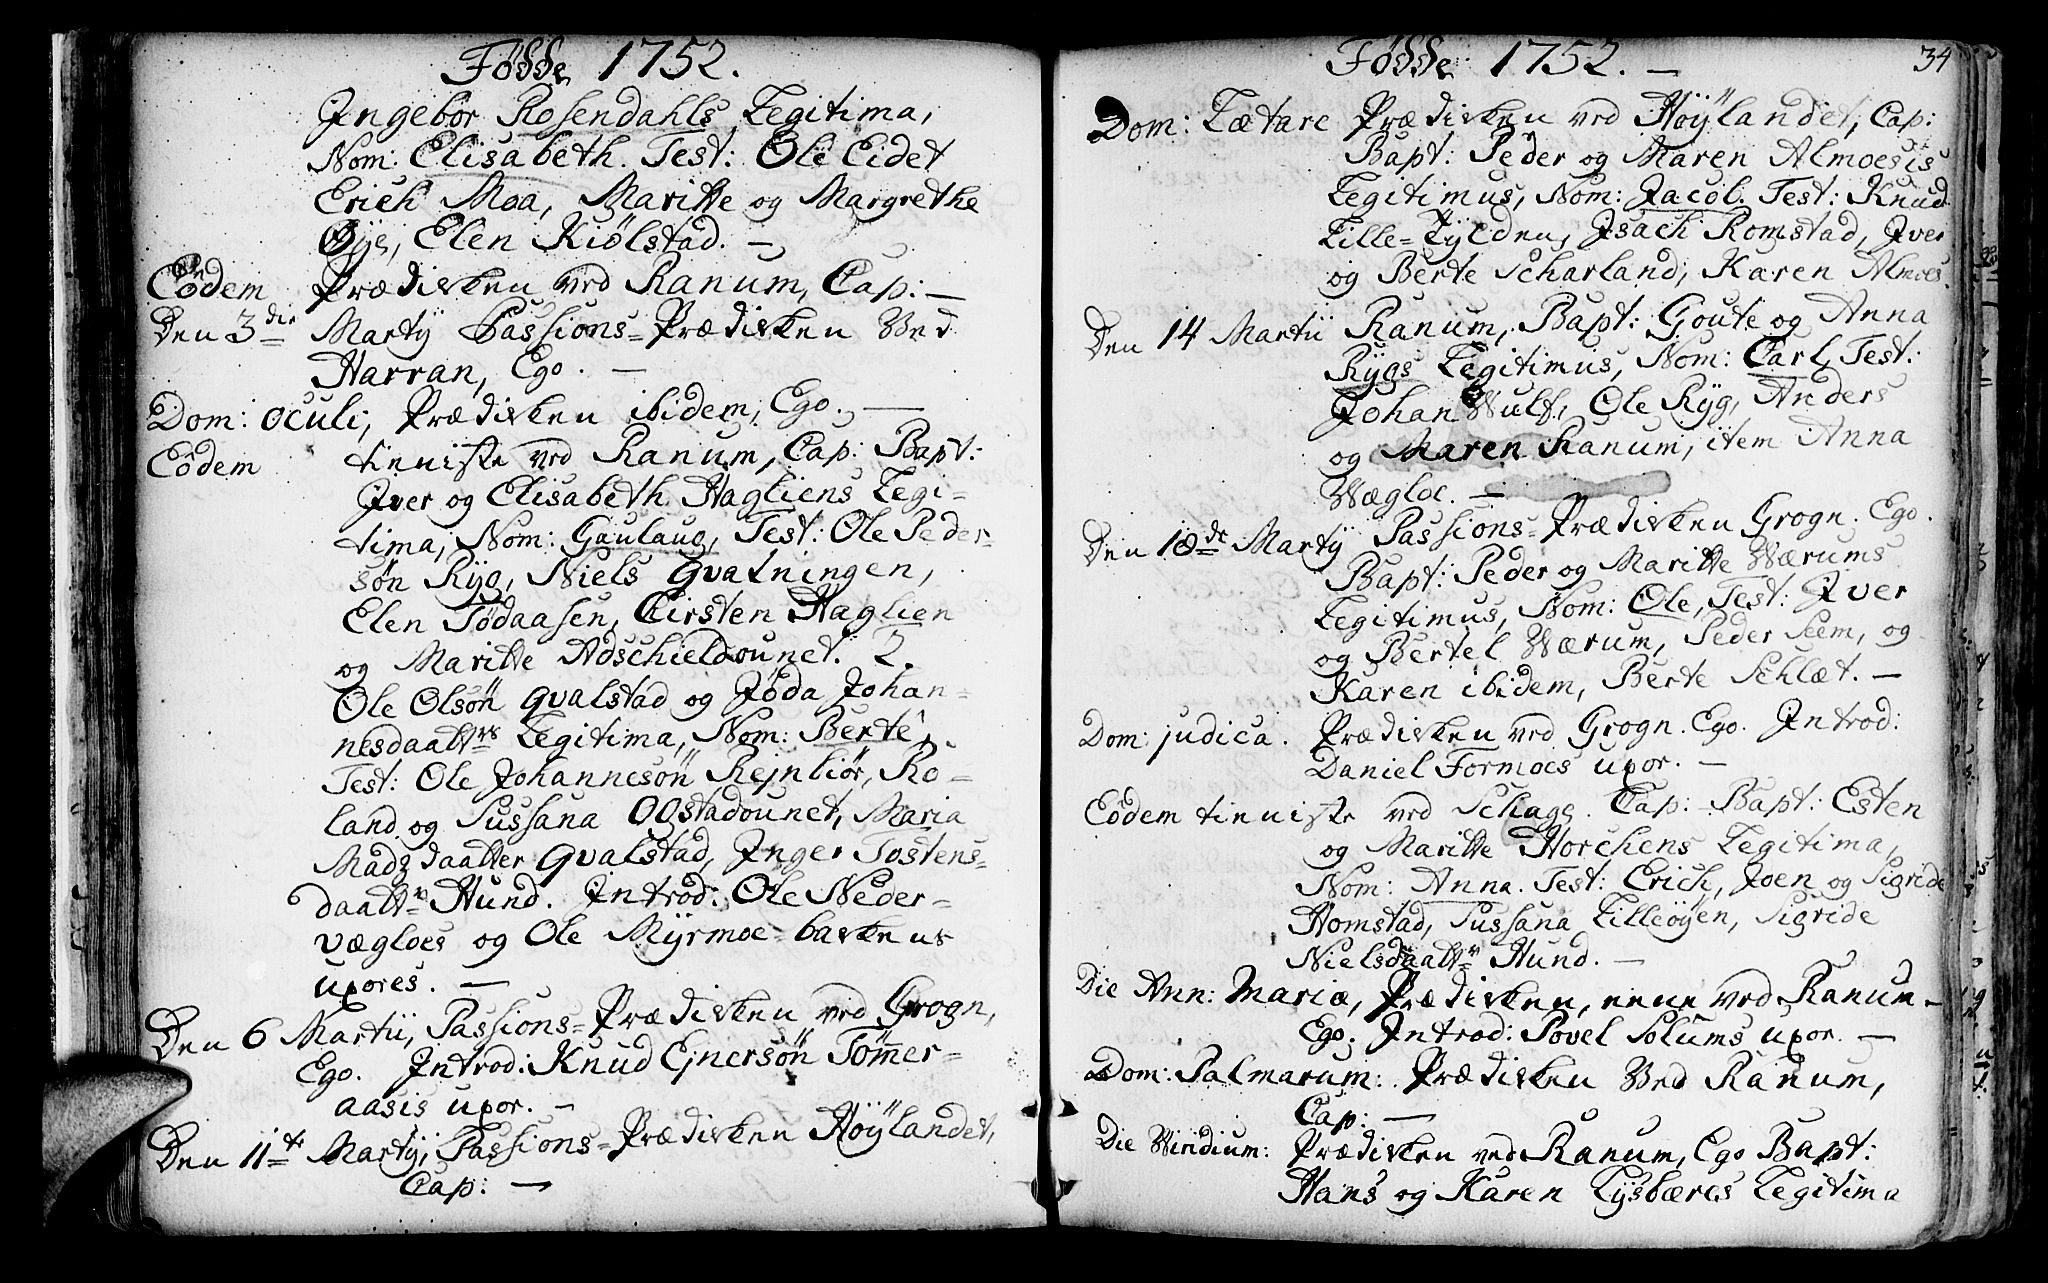 Födde 1752.
Ingebor Rosendahls Legitima,
Nom: Elisabeth. Test: Ole Eidet
Erich Moa, Maritte og Margrethe
Øye, Elen Kiölstad. —
Eôdem Prædicken ved Ranum, Cap: —
Den 3die Martÿ Passions=Prædicken Ved
Harran, Ego. —
Dom: Oculi, Prædicken ibidem, Ego. —
Eôdem tieniste ved Ranum, Cap: Bapt:
Iver og Elisabeth Hagliens Legi=
tima, Nom: Gaulaug, Test: Ole Peder=
søn Rÿg, Niels Qvatningen,
Elen Tödaasen, Kirsten Haglien
og Maritte Adschieldounet. 2.
Ole Olsön Qvalstad og Jöda Johan=
nesdaattrs Legitima, Nom: Berte,
Test: Ole Johannesön Rejnliör, Ro=
land og Sussana Oostadounet, Maria
Madz daatter Qvalstad, Inger Tostens=
daattr Hund. Introd: Ole Neder=
vægloes og Ole Mÿrmoe=backens
uxores. —
Den 6 Martii, Passions=Prædicken ved Grogn,
Ego. Introd: Knud Ejnersön Tömmer=
aasis uxor. —
Den 11te Martÿ, Passions=Prædicken Höÿlandet,
Cap: —
Födde 1752. —
34
Dom: Lætare Prædicken ved Höÿlandet, Cap:
Bapt: Peder og Maren Almoesis
Legitimus, Nom: Jacob. Test: Knud
Lille=Tÿlden, Isach Romstad, Iver
og Berte Scharland, Karen Almoes.
Den 14 Martii Ranum, Bapt: Goute og Anna
Rÿgs Legitimus, Nom: Carl, Test:
Johan Wulf, Ole Rÿg, Anders
og Maren Ranum, item Anna
Wægloe. —
Den 18de Martÿ Passions=Prædicken Grogn. Ego.
Bapt: Peder og Maritte Wærums
Legitimus, Nom: Ole, Test: Iver
og Bertel Wærum, Peder Seem, og
Karen ibidem, Berte Schlæt. —
Dom: judica. Prædicken ved Grogn. Ego. Introd:
Daniel Formoes uxor. —
Eôdem tieniste ved Schage. Cap: Bapt: Esten
og Maritte Horchens Legitima,
Nom: Anna. Test: Erich, Joen og Sigride
Homstad, Sussana Lilleöÿen, Sigride
Nielsdaattr Hund. —
Die Ann: Mariæ, Prædicken, ved Ranum —
Ego. Introd: Povel Solums uxor. —
Dom: Palmarum: Prædicken Ved Ranum,
Cap: —
Die Viridium: Prædicken ved Ranum, Ego Bapt:
Hans og Karen Lysbæres Legitima